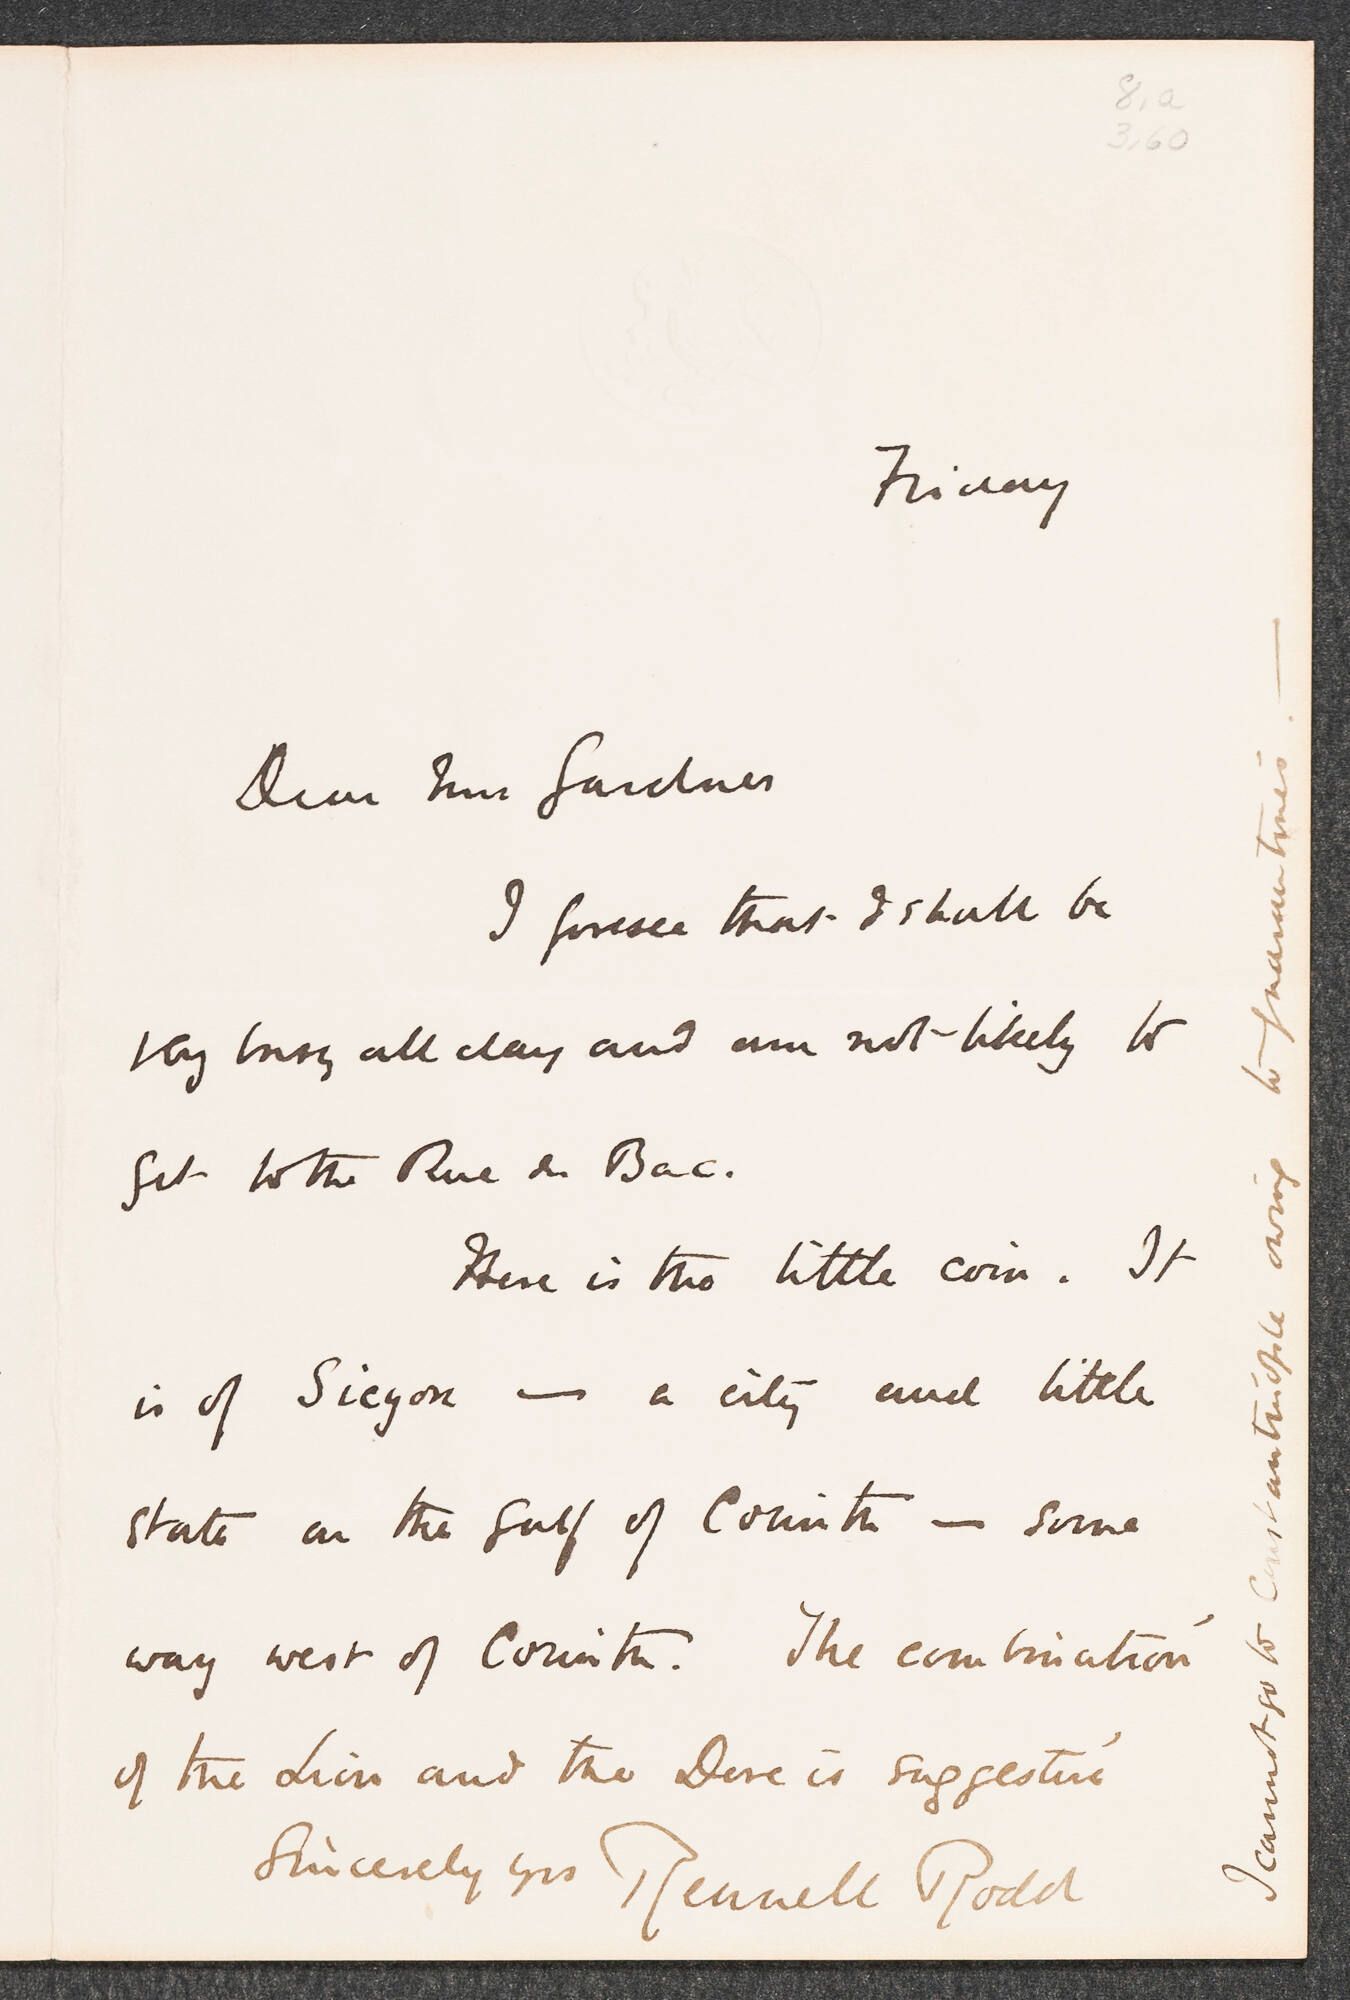 8.a
3.60
Friday
Dear Mrs Gardner
I foresee that I shall be
very busy all day and am not likely to
get to the Rue du Bac.
Here is the little coin. It
is of Sicyon — a city and little
state on the Gulf of Corinth — some
way west of Corinth. The combination
of the Lion and the Dove is suggestive
Sincerely yrs Rennell Rodd
I cannot go to Constantinople owing to quarantines. —